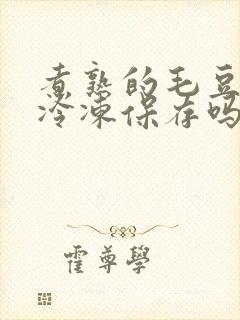 煮熟的毛豆
冷冻保存吗
霍尊學